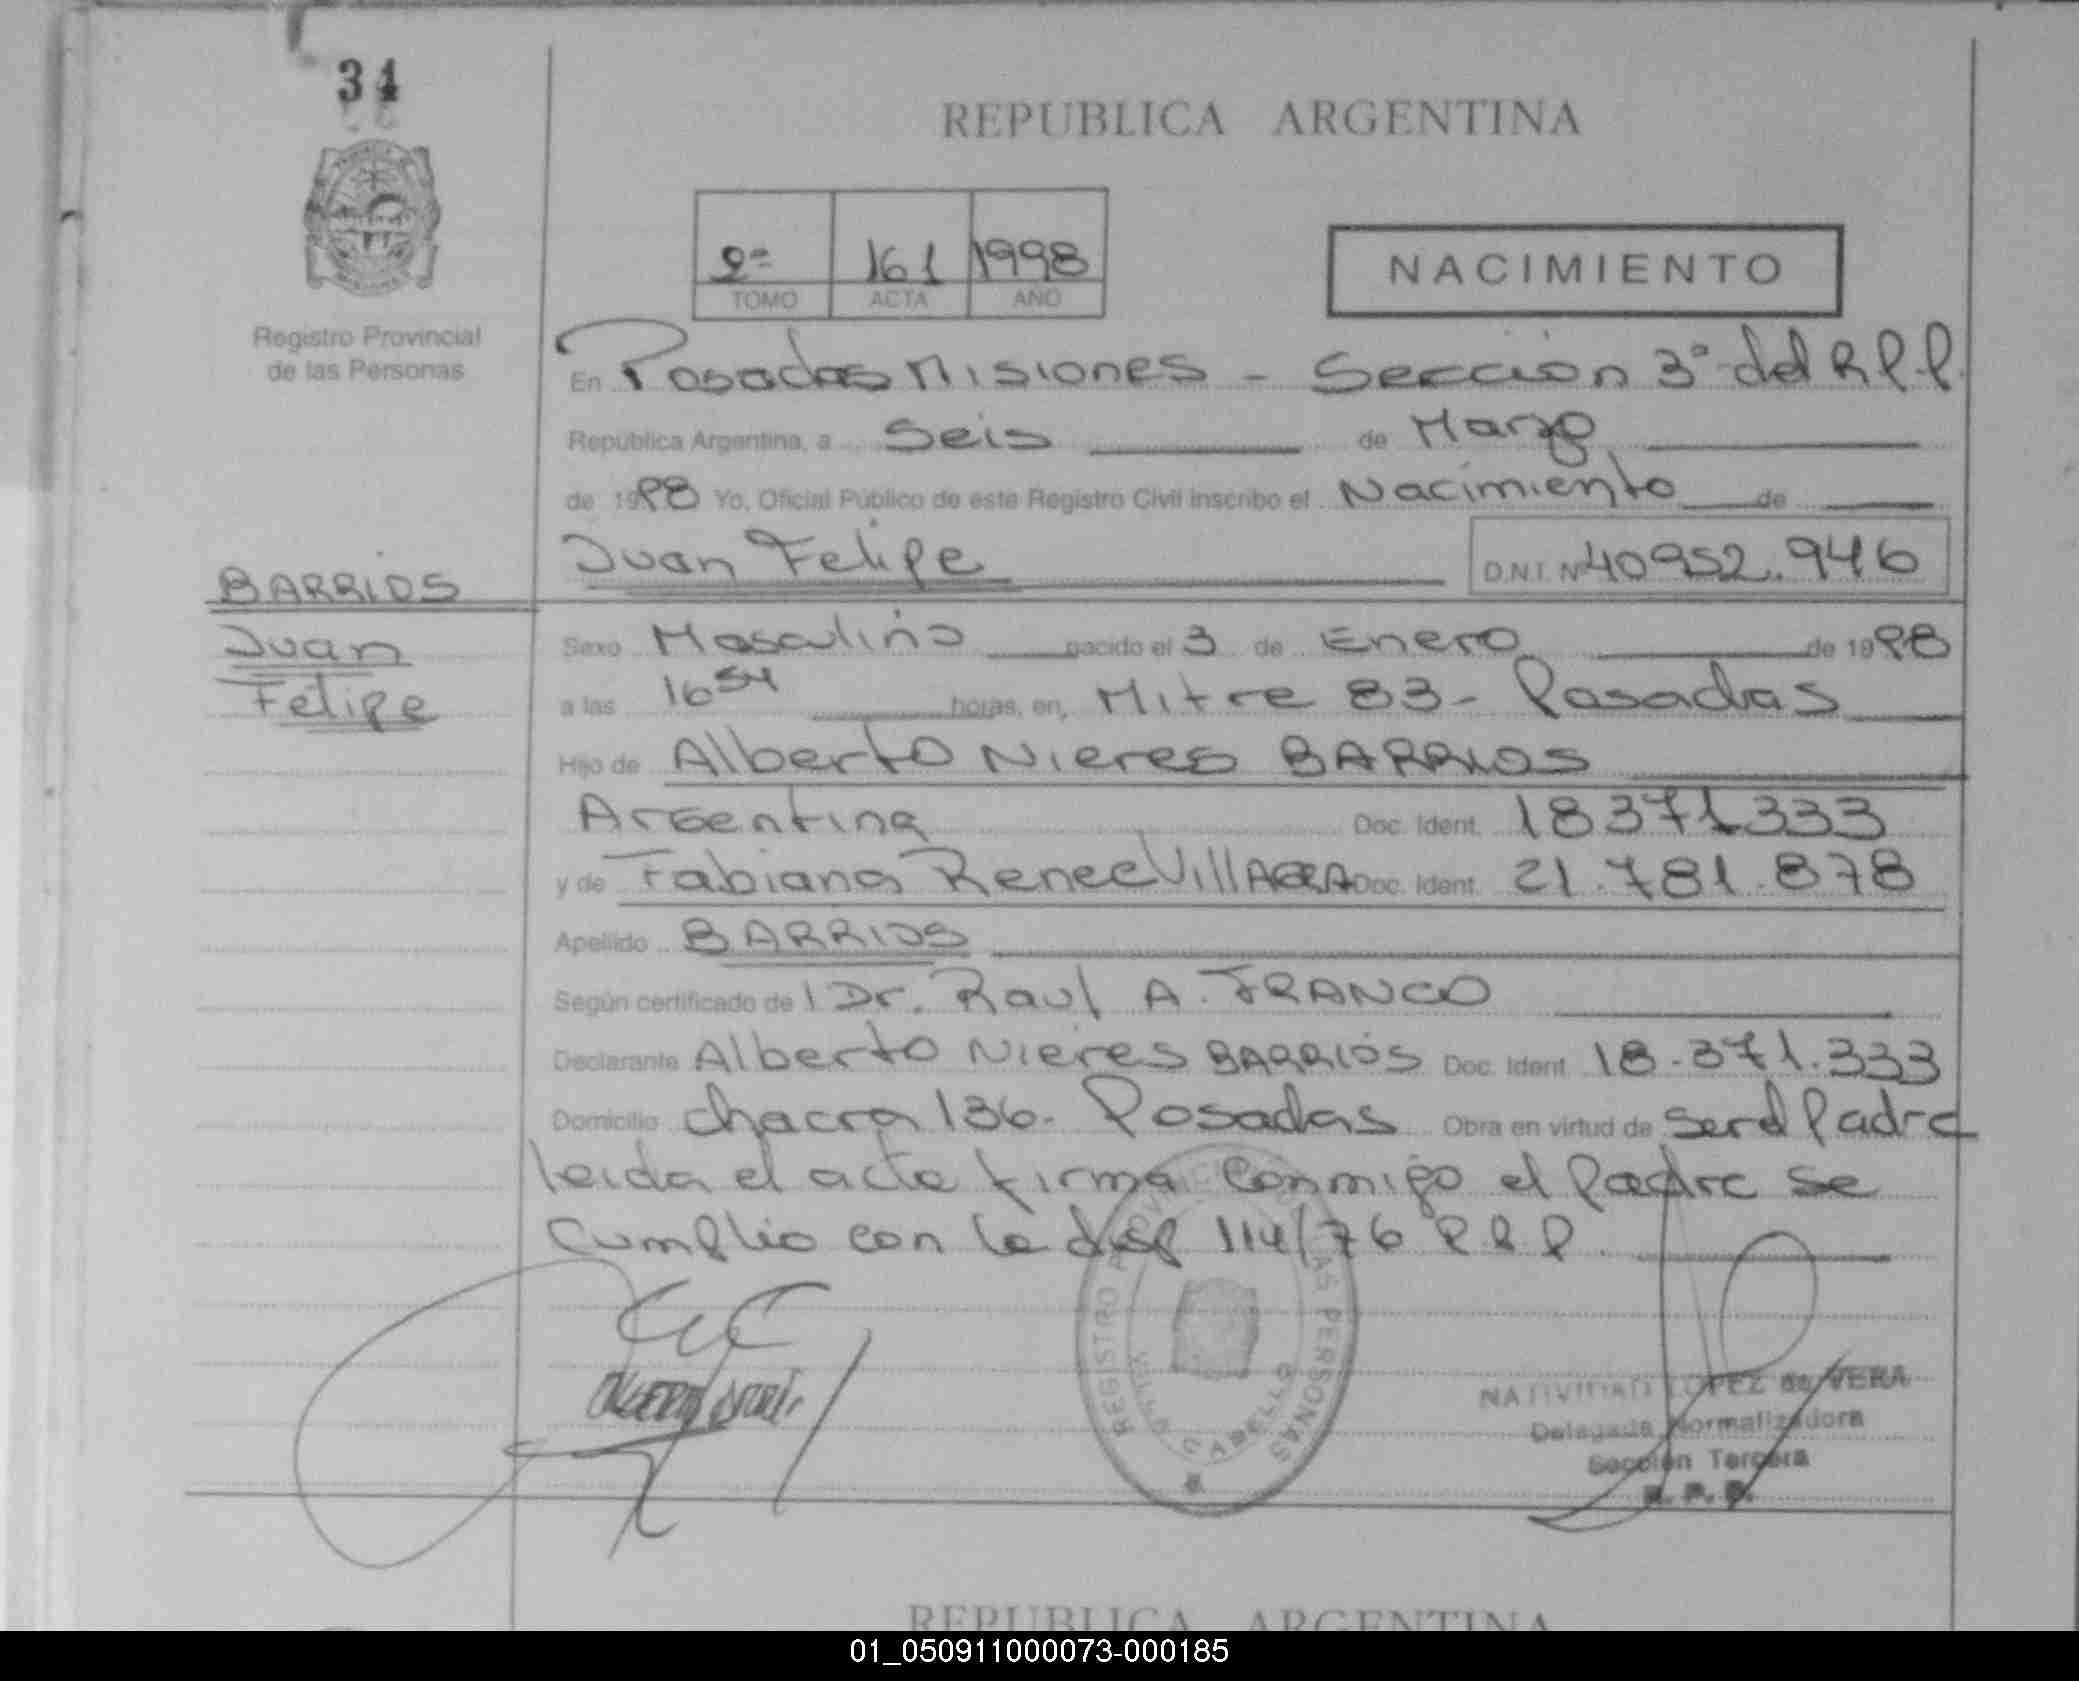 34
REPUBLICA ARGENTINA
2º 161 1998
TOMO ACTA AÑO
NACIMIENTO
Registro Provincial
de las Personas
En Posadas Misiones - Sección 3ª del R.P.P.
República Argentina, a Seis de Marzo
de 1998 Yo, Oficial Público de este Registro Civil inscribo el Nacimiento de
Juan Felipe D.N.I. Nº 40952.946
BARRIOS
Juan
Felipe
Sexo Masculino nacido el 3 de Enero de 1998
a las 16 54 horas, en, Mitre 83 - Posadas
Hijo de Alberto Nieres BARRIOS
Argentina Doc. Ident. 18371333
y de Fabiana Renee Doc. Ident. 21.781.878
Apellido BARRIOS
Según certificado de l Dr. Raul A. FRANCO
Declarante Alberto Nieres BARRIOS Doc. Ident. 18.371.333
Domicilio chacra 136. Posadas Obra en virtud de ser el Padre
leida el acta firma conmigo el Padre se
cumplio con la disp 114/76 R.P.P.
REGISTRO PROVINCIAL DE LAS PERSONAS
VILLA CABELLO
NATIVIDAD LOPEZ de VERA
Delegada Normalizadora
Sección Tercera
R. P. P.
REPUBLICA ARGENTINA
01_050911000073-000185